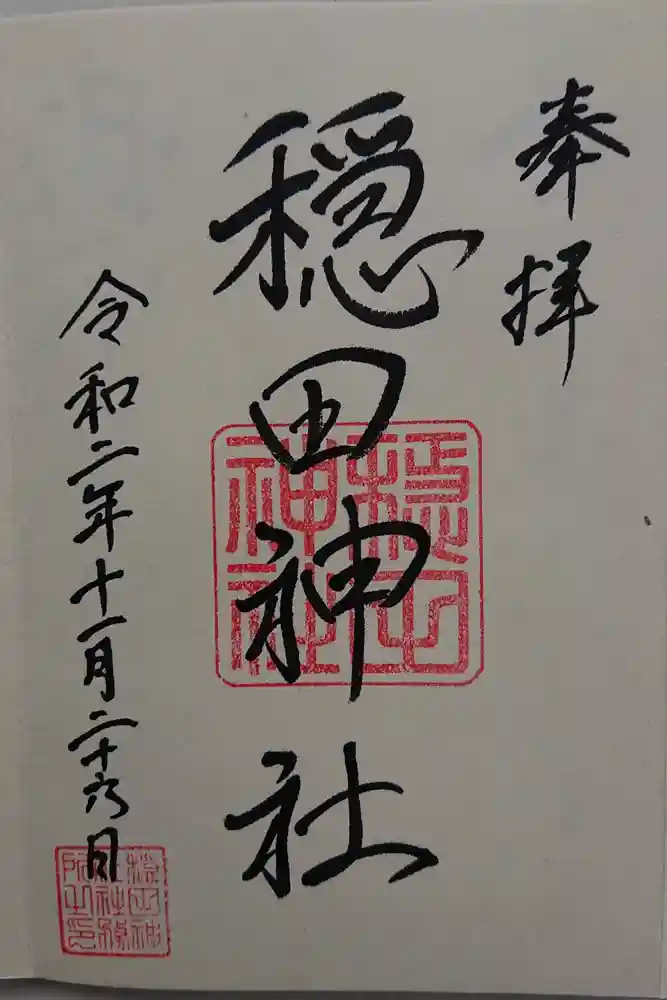 奉拝
穏田神社
穏田神社
令和二年十一月二十六日
穏田神社務所之印